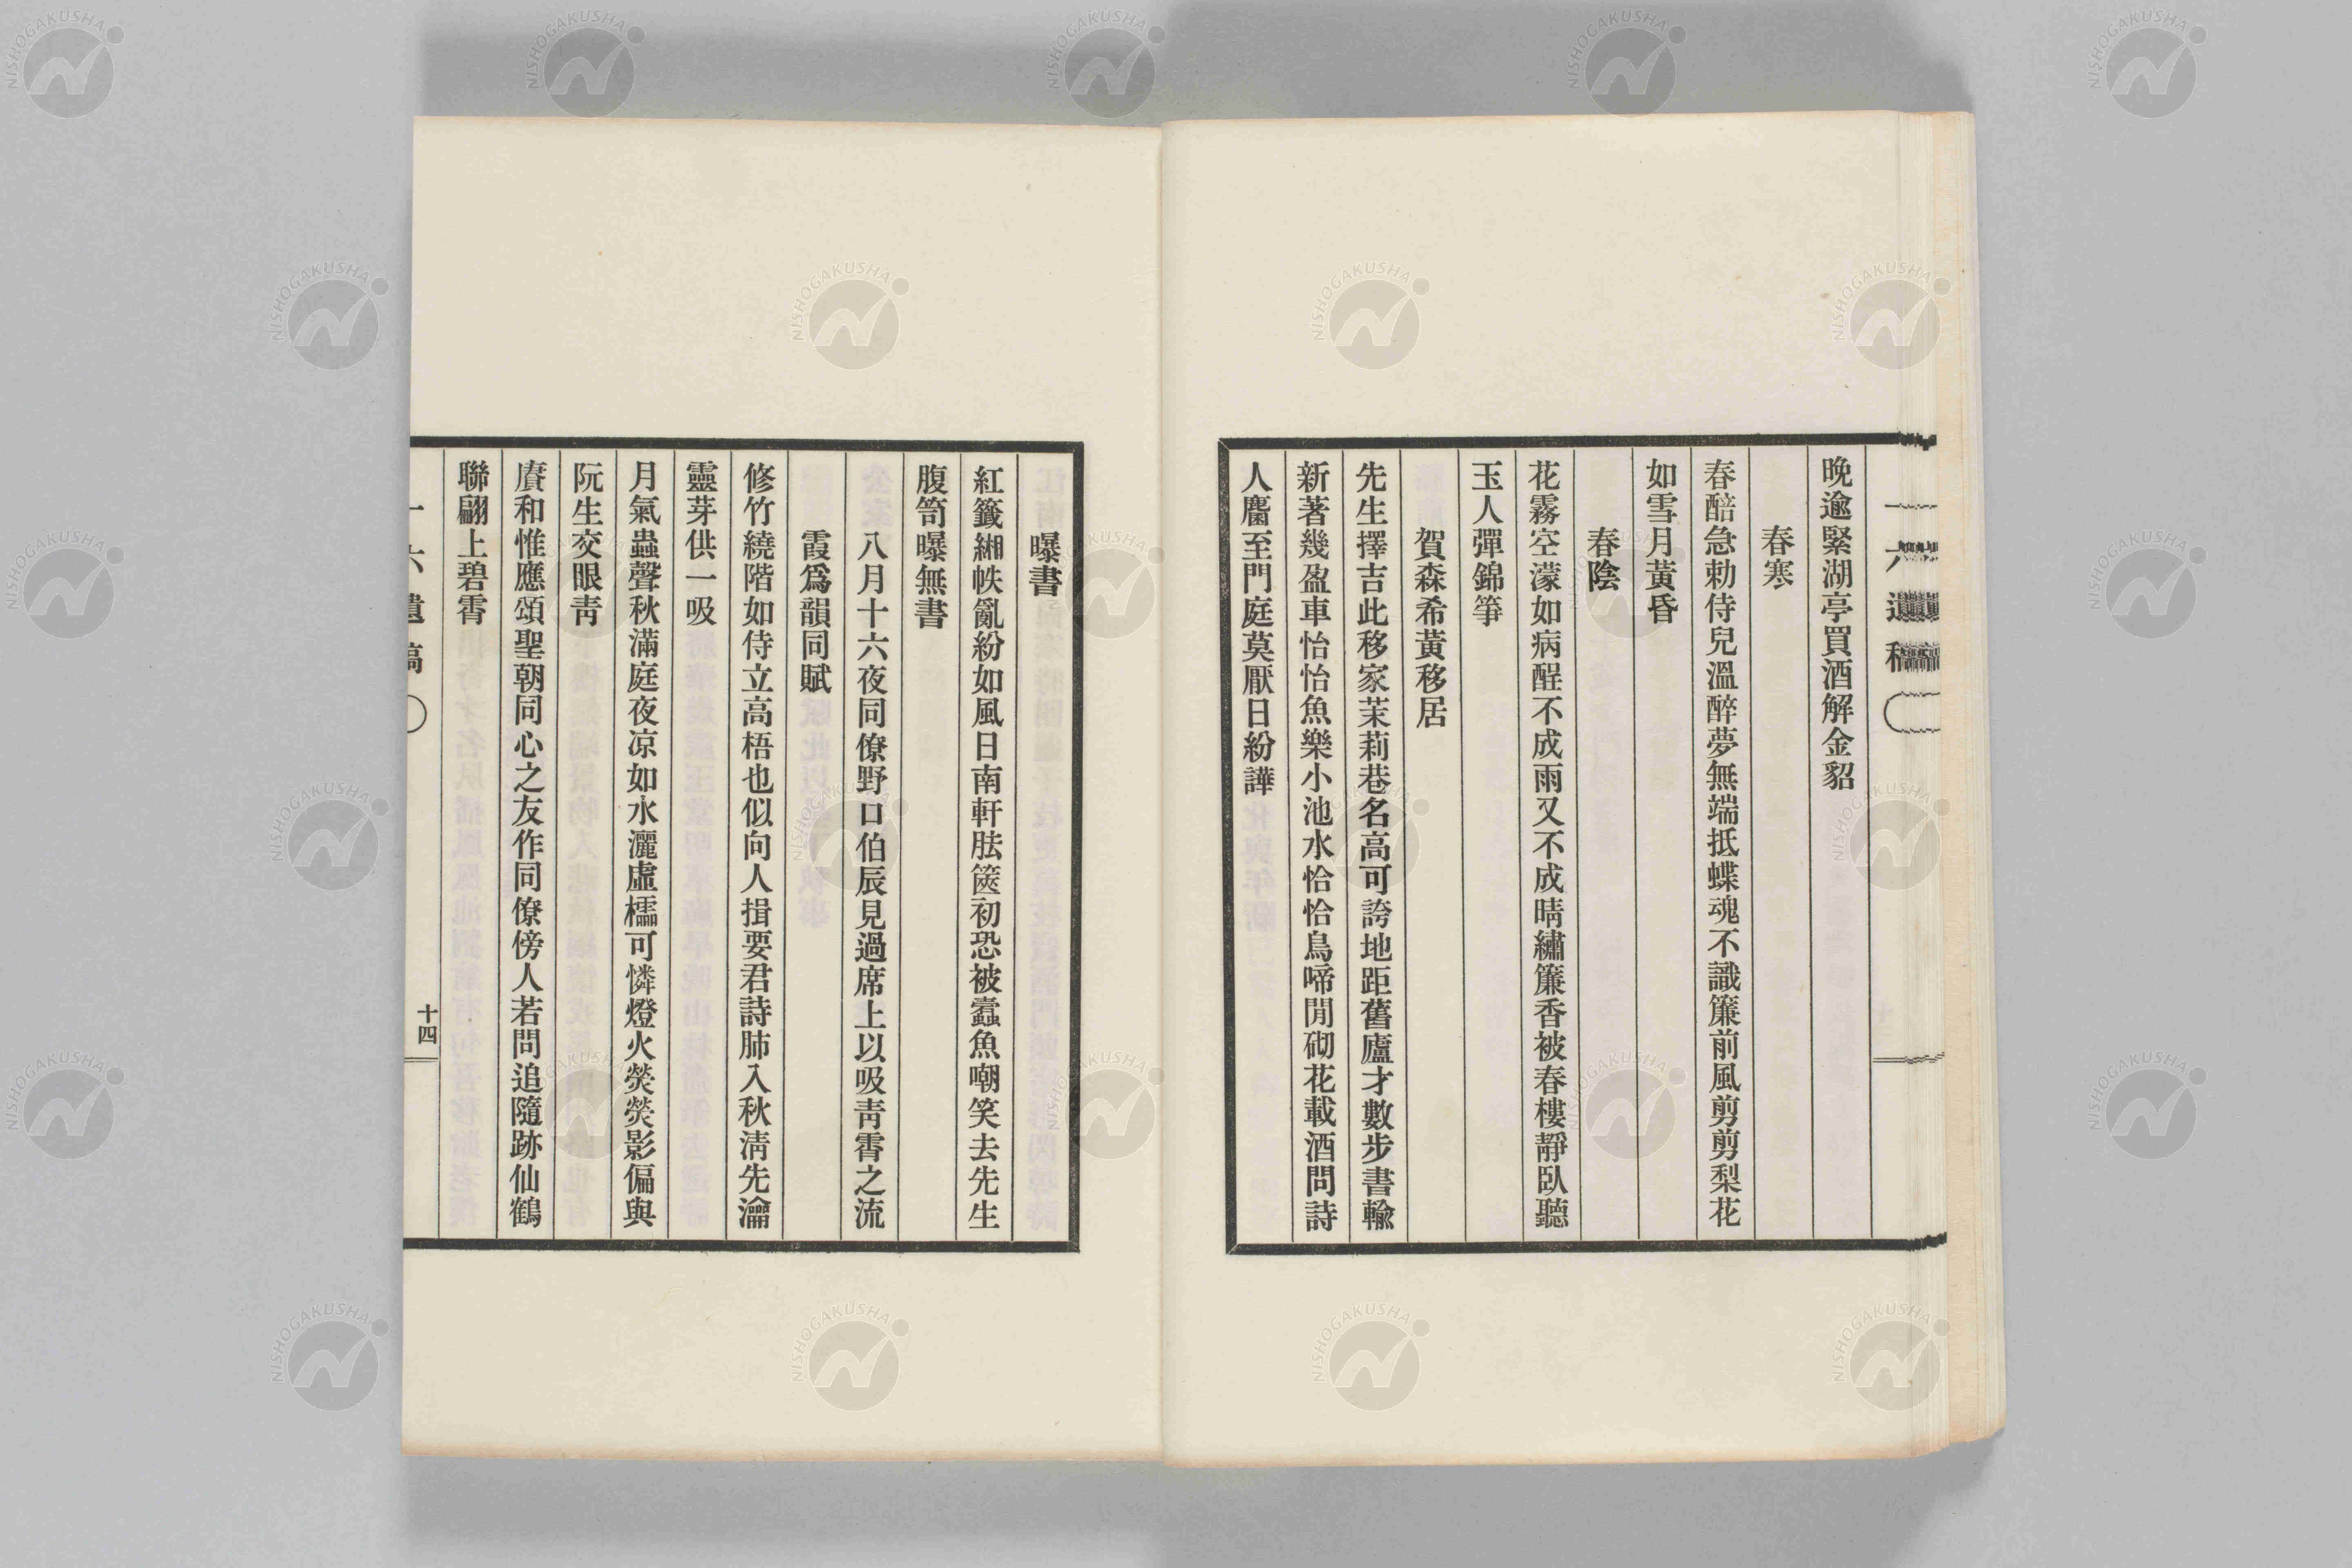 一六遺稿
晚逾緊湖亭買酒解金貂
春寒
春醅急勅侍兒溫醉夢無端抵蝶魂不識簾前風剪剪梨花
如雪月黃昏
春陰
花霧空濛如病酲不成雨又不成晴繡簾香被春樓靜臥聽
玉人彈錦箏
賀森希黃移居
先生擇吉此移家茉莉巷名高可誇地距舊廬才數步書輸
新著幾盈車怡怡魚樂小池水恰恰鳥啼閒砌花載酒問詩
人麕至門庭莫厭日紛譁
曝書
紅籤緗帙亂紛如風日南軒胠篋初恐被蠹魚嘲笑去先生
腹笥曝無書
八月十六夜同僚野口伯辰見過席上以吸靑霄之流
霞爲韻同賦
修竹繞階如侍立高梧也似向人揖要君詩肺入秋淸先瀹
靈芽供一吸
月氣蟲聲秋滿庭夜凉如水灑虛櫺可憐燈火熒熒影偏與
阮生交眼靑
賡和惟應頌聖朝同心之友作同僚傍人若問追隨跡仙鶴
聯翩上碧霄
一六遺稿
十四
NISHOGAKUSHA